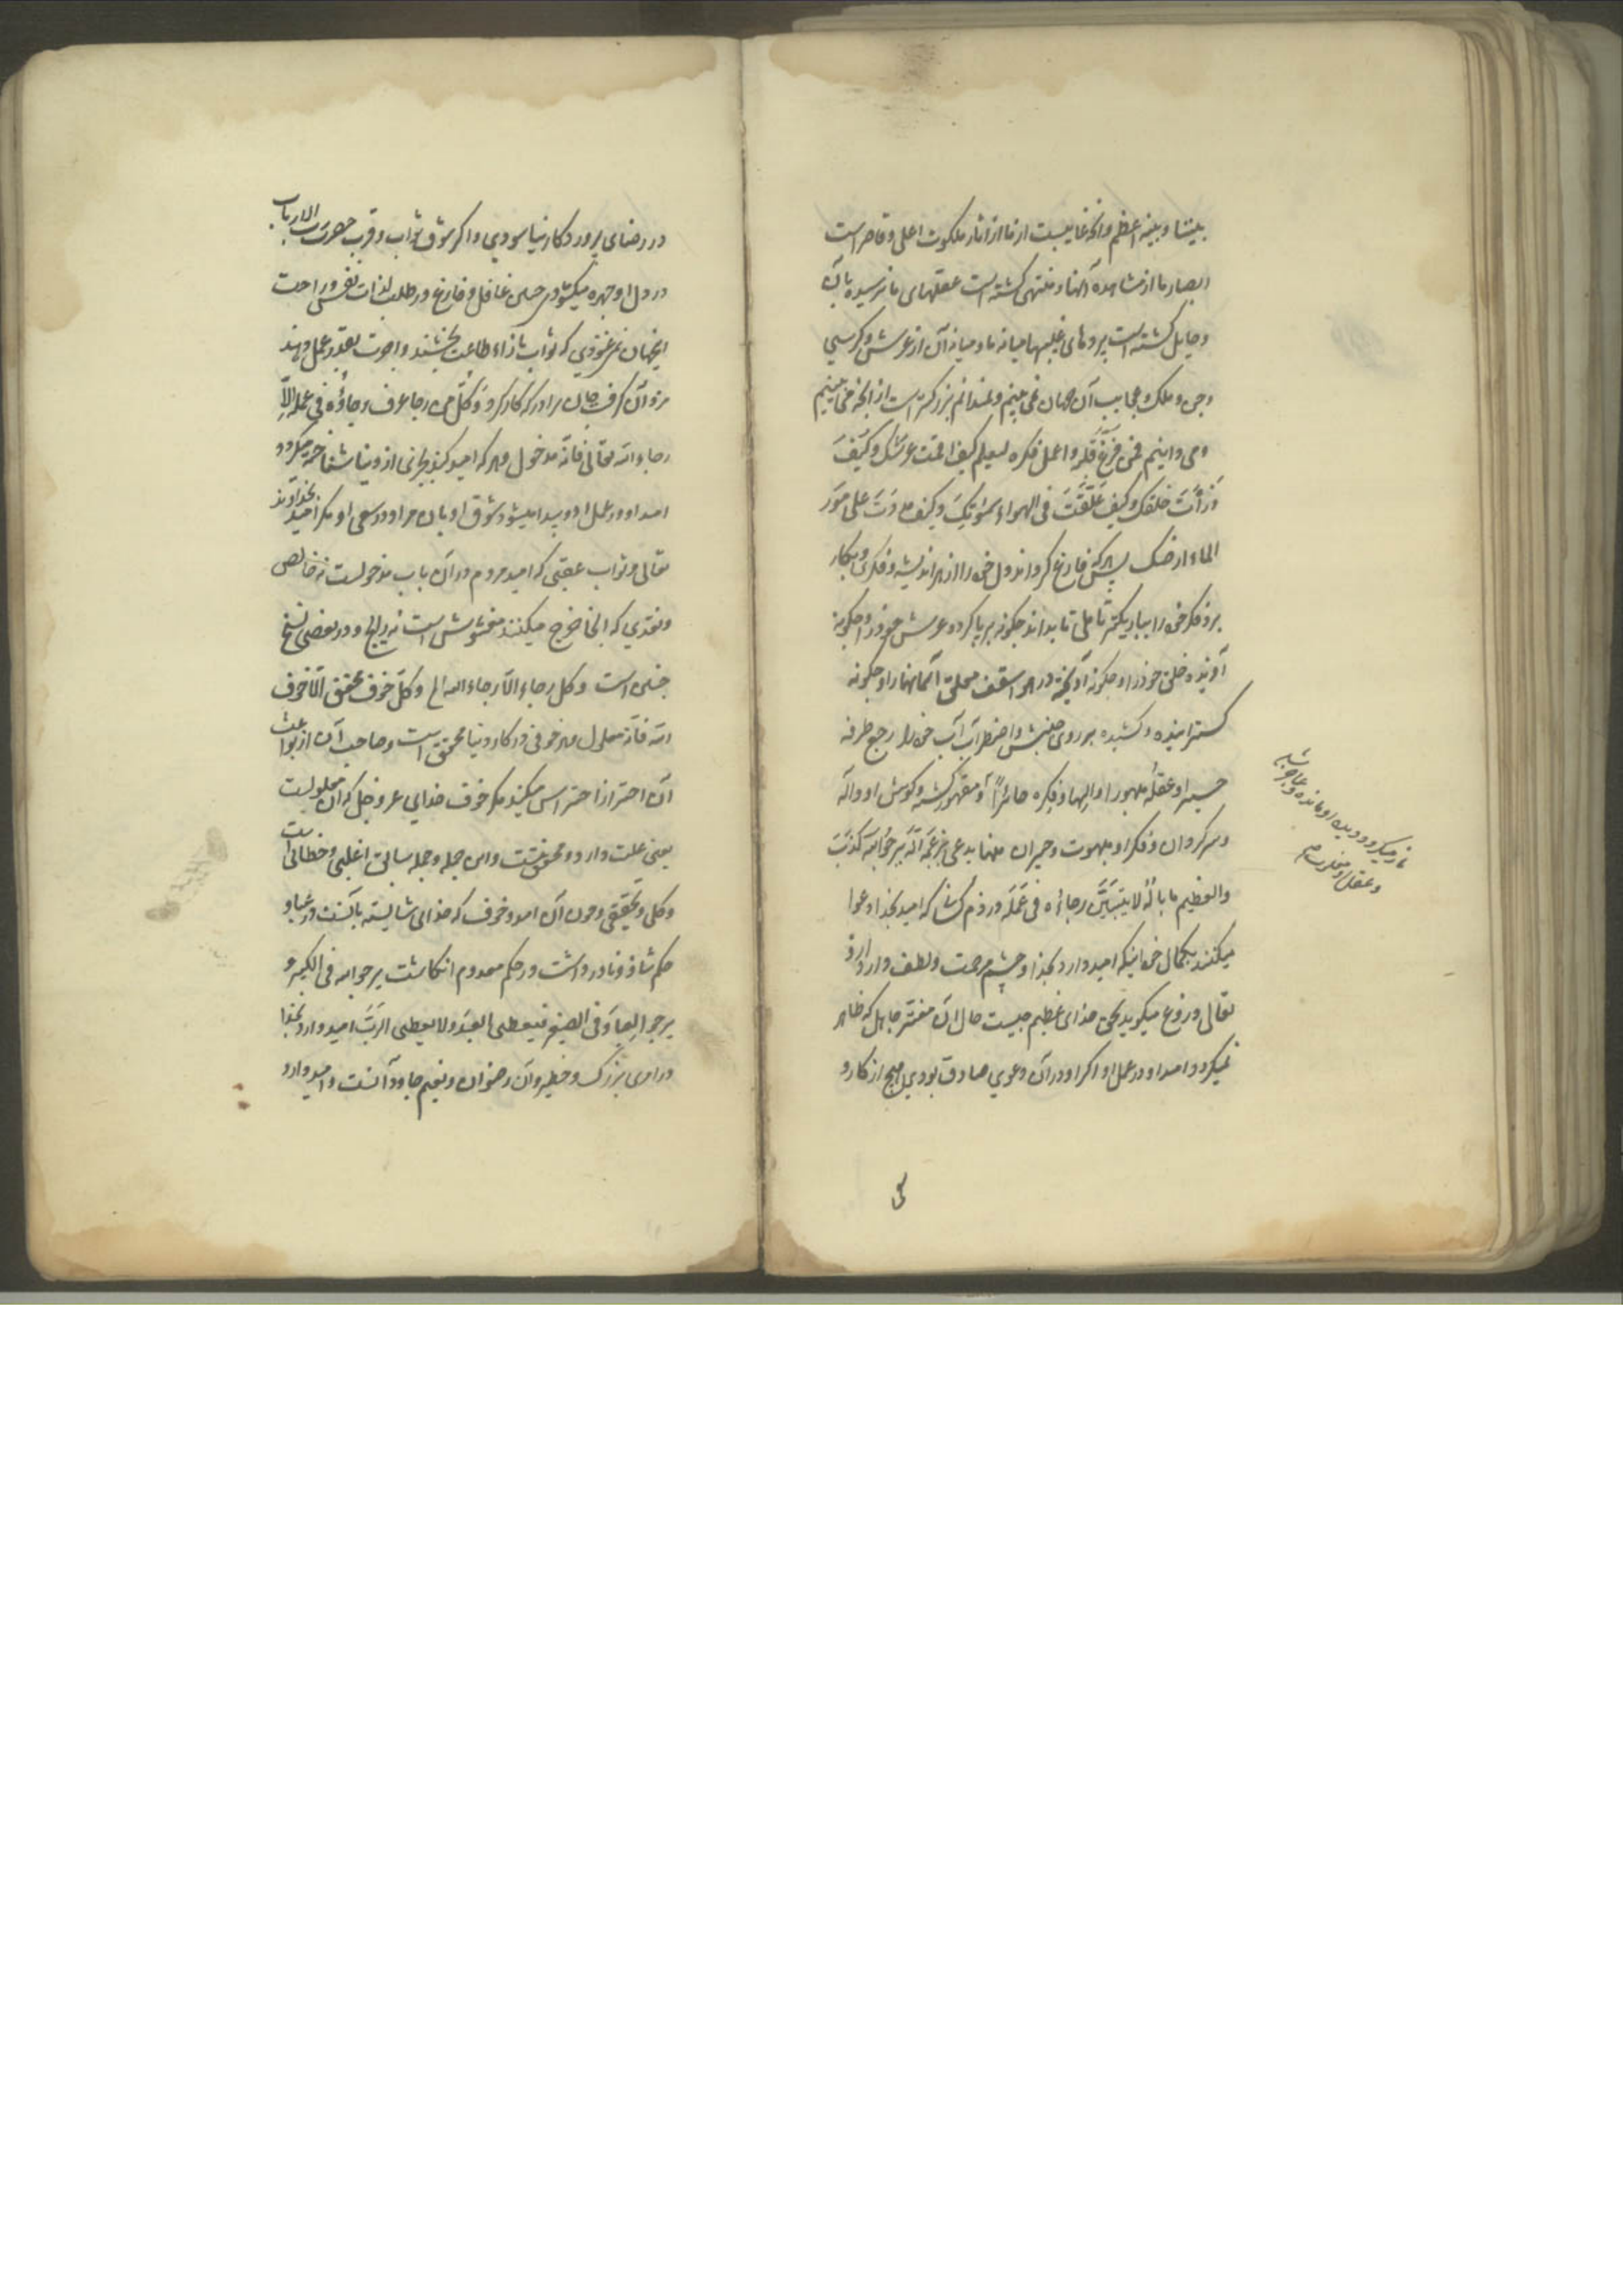 بیننا و بینه اعظم و آنکه غایبست از ما از آثار ملکوت اعلی و قاصر است
ابصار ما از مشاهده آنها و منتهی گشته است عقلهای ما نرسیده بآن
و حایل گشته است پرده‌های غیبها میانه ما و میانه آن از عرش و کرسی
و جن و ملک و عجایب آن جهان نمی بینم و نمیدانم بزرگتر است از آنچه می بینم
و می دانیم فمن فرغ قلبه و اعمل فکره لیعلم کیف اقمت عرشک و کیف
ذرأت خلقک و کیف علقت فی الهواء سمواتک و کیف مددت علی مور
الماء ارضک پس هر که فارغ گرداند دل خود را از هر اندیشه و فکری و بکار
برد فکر خود را بسیاریکتر تأملی تا بداند چگونه برپا کرده عرش خود را و چگونه
آفریده خلق خود را و چگونه آویخته در هوا سقف معلق آسمانها را و چگونه
گسترانیده و کشیده بر روی جنبش و اضطراب آب خود را رجع طرفه
حسیرا و عقله مبهورا و الها و فکره حائرا و مقهور گشته و گوش او واله
و سرگردان و فکر او مبهوت و حیران منها یدعی بزعمه انه یرجو الله کذب
والعظیم ما باله لا یتبین رجاؤه فی عمله در ذم کسان که امید بخدا دعوا
میکنند بکمال خود اینکه امیدوارد بخدا و چشم مرحمت و لطف وارد از او
تعالی دروغ میگوید بحق خدای عظیم چیست حال آن مفتر جاهل که ظاهر
نمیگردد امید او در عمل او اگر او در آن دعوی صادق بودی هیچ از کار و
باز میگردد دیده او مانده و عاجز شده
و عقل او مغلوب
در رضای پروردگار نیاسودی و اگر شوق ثواب و قرب حضرت رب الارباب
در دل او چهره میگشودی غافل و فارغ در طلب لذات نفس و راحت
اینجهان نمی غنودی که ثواب بازاء طاعت بخشند و اجرت بقدر عمل دهند
مزد آن گرفت جان برادر که کار کرد و کل من رجا عرف رجاؤه فی عمله الا
رجاء الله تعالی فانه مدخول و هر که امید کند بجائی از دنیا شناخته میگردد
امید او در عمل او و پیدا میشود شوق او بآن مراد و در سعی او مگر امید بخداوند
تعالی و ثواب عقبی که امید مردم در آن باب مدخولست نه خالص
و نقدی که آنجا خرج میکنند مغشوش است نه رایج و در بعضی نسخ
چنین است و کل رجاء الا رجاء الله الخ و کل خوف محقق الا خوف
الله فانه معلول و هر خوفی در کار دنیا محقق است و صاحب آن از بواعث
آن احتراز احتراس میکند مگر خوف خدای عز و جل که آن معلولست
یعنی علت دارد و محقق نیست و این جمله و جمله سالف اغلبی و خطابی است
و کلی و تحقیقی و چون آن امید و خوف که خدای شایسته بآنست در عباد
حکم شاذ و نادر داشت در حکم معدوم انگاشت یرجو الله فی الکبیر و
یرجو العباد فی الصغیر فیعطی العبد و لا یعطی الرب امید دارد بخدا
در امری بزرگ و خطیر و آن رضوان و نعیم جاودانست و امید دارد